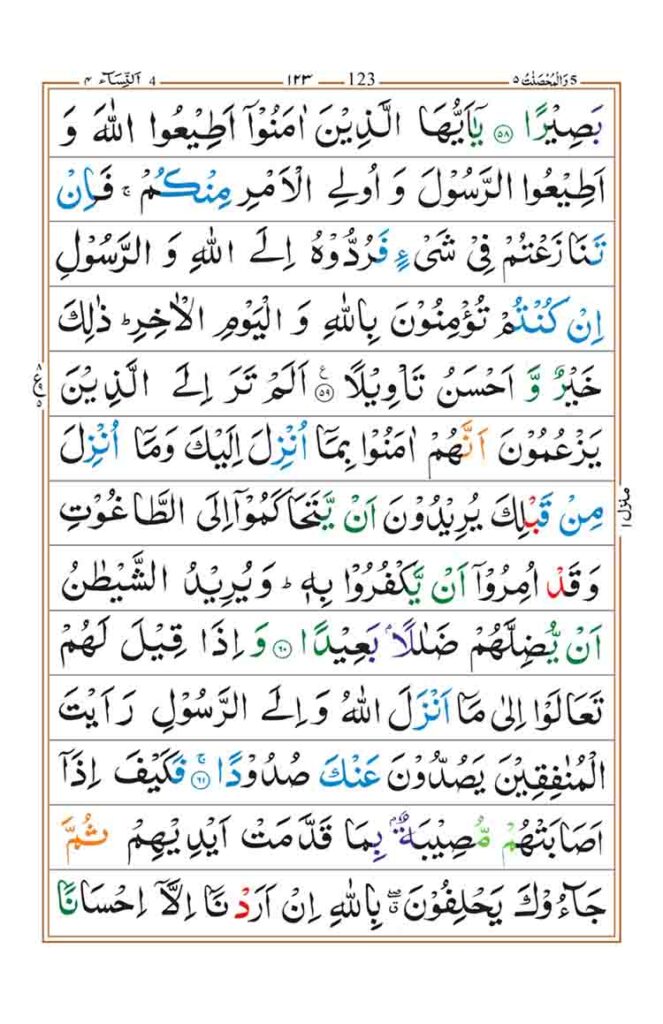 5 وَالْمُحْصَنٰتُ ٥ 123 ١٢٣ 4 اَلنِّسَآء ٤
بَصِيْرًا ﴿٥٨﴾ يٰۤاَيُّهَا الَّذِيْنَ اٰمَنُوْۤا اَطِيْعُوا اللّٰهَ وَ
اَطِيْعُوا الرَّسُوْلَ وَ اُولِى الْاَمْرِ مِنْكُمْ ۚ فَاِنْ
تَنَازَعْتُمْ فِىْ شَىْءٍ فَرُدُّوْهُ اِلَى اللّٰهِ وَ الرَّسُوْلِ
اِنْ كُنْتُمْ تُؤْمِنُوْنَ بِاللّٰهِ وَ الْيَوْمِ الْاٰخِرِ ؕ ذٰلِكَ
خَيْرٌ وَّ اَحْسَنُ تَاْوِيْلًا ﴿٥٩﴾ اَلَمْ تَرَ اِلَى الَّذِيْنَ
ع
يَزْعُمُوْنَ اَنَّهُمْ اٰمَنُوْا بِمَاۤ اُنْزِلَ اِلَيْكَ وَمَاۤ اُنْزِلَ
مِنْ قَبْلِكَ يُرِيْدُوْنَ اَنْ يَّتَحَاكَمُوْۤا اِلَى الطَّاغُوْتِ
منزل ١
وَ قَدْ اُمِرُوْۤا اَنْ يَّكْفُرُوْا بِهٖ ؕ وَيُرِيْدُ الشَّيْطٰنُ
اَنْ يُّضِلَّهُمْ ضَلٰلًاۢ بَعِيْدًا ﴿٦٠﴾ وَ اِذَا قِيْلَ لَهُمْ
تَعَالَوْا اِلٰى مَاۤ اَنْزَلَ اللّٰهُ وَ اِلَى الرَّسُوْلِ رَاَيْتَ
الْمُنٰفِقِيْنَ يَصُدُّوْنَ عَنْكَ صُدُوْدًا ۚ ﴿٦١﴾ فَكَيْفَ اِذَاۤ
اَصَابَتْهُمْ مُّصِيْبَةٌۢ بِمَا قَدَّمَتْ اَيْدِيْهِمْ ثُمَّ
جَآءُوْكَ يَحْلِفُوْنَ ۖ ۗ بِاللّٰهِ اِنْ اَرَدْنَاۤ اِلَّاۤ اِحْسَانًا